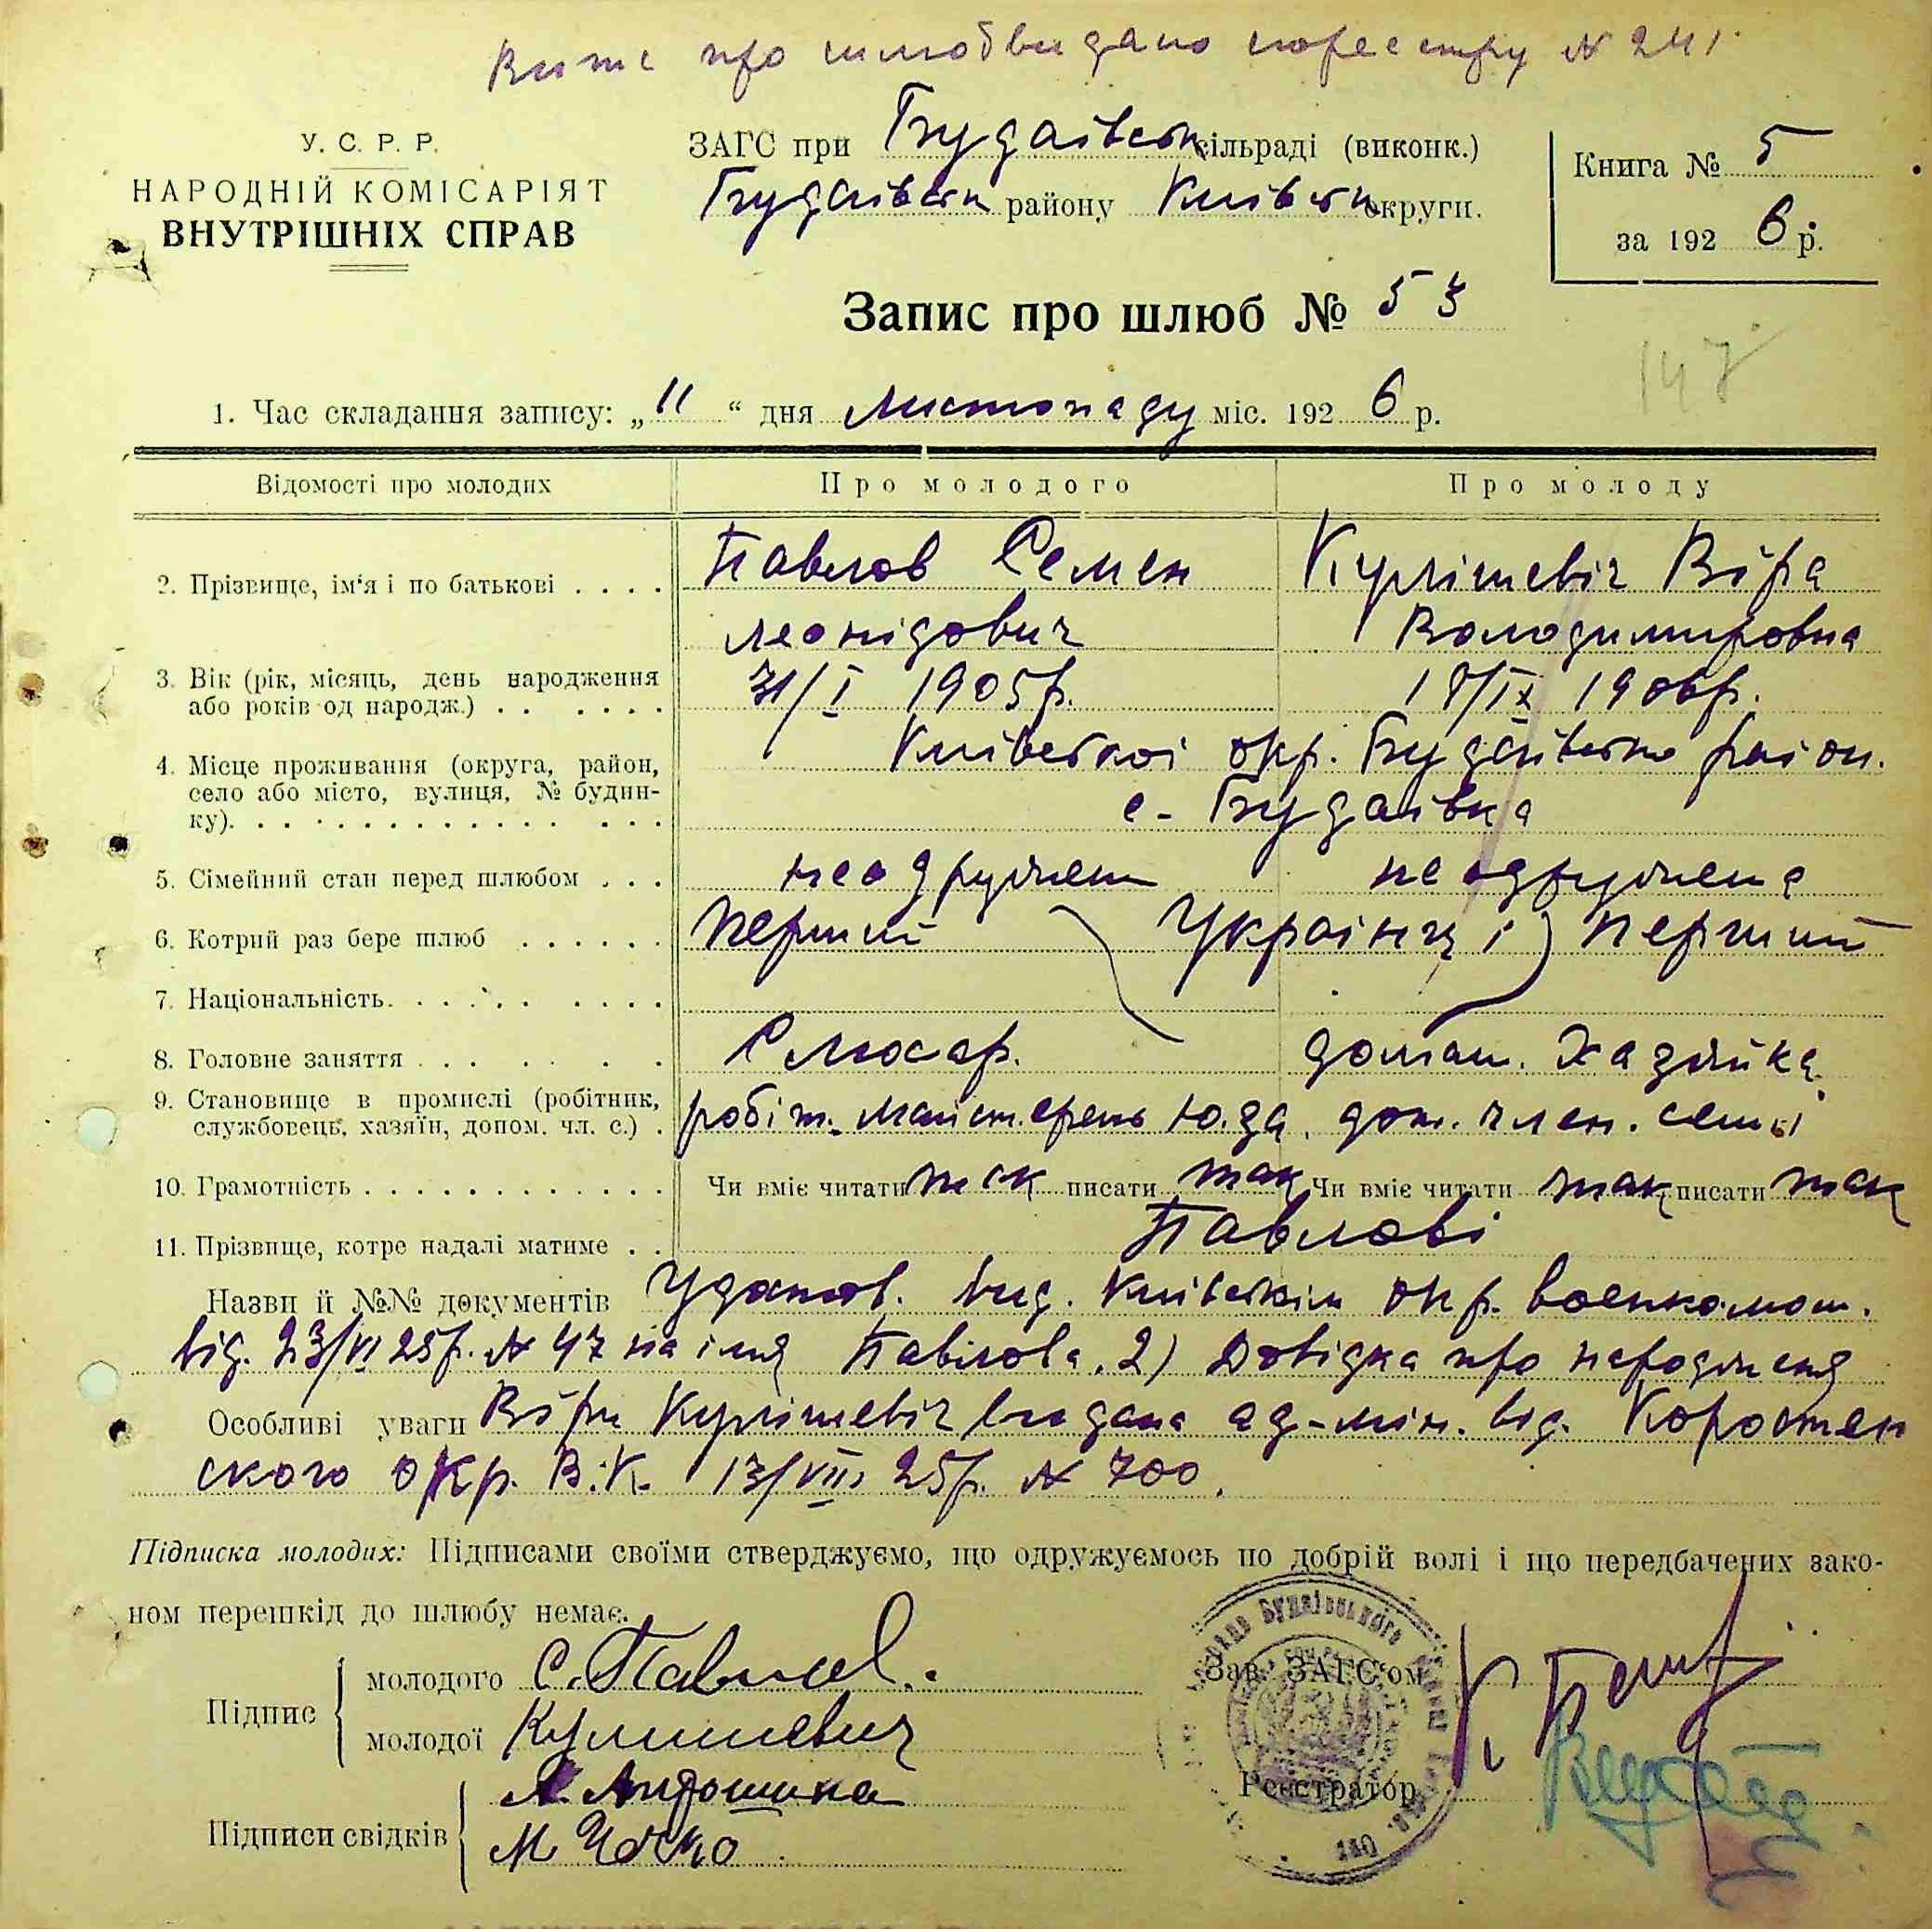 Витяг про шлюб видано по реєстру № 241.
У. С. Р. Р.
НАРОДНІЙ КОМІСАРІЯТ
ВНУТРІШНІХ СПРАВ
ЗАГС при Будаівськ сільраді (виконк.)
Будаівськ району Київськ округи.
Книга № 5
за 192 6 р.
Запис про шлюб № 53
147
1. Час складання запису: „11“ дня листопаду міс. 192 6 р.
Відомості про молодих Про молодого Про молоду
2. Прізвище, ім‘я і по батькові . . . . Павлов Семен Кулішевіч Віра
Леонідович Володимировна
3. Вік (рік, місяць, день народження
або років од народж.) . . . . . . 31/I 1905р. 18/IX 1906р.
4. Місце проживання (округа, район,
село або місто, вулиця, № будин-
ку). . . . . . . . . . . . . . . Київської окр. Будаівсько район.
с. Будаівка
5. Сімейний стан перед шлюбом . . . неодружен неодружена
6. Котрий раз бере шлюб . . . . . . перший Українці перший
7. Національність. . . . . . . . . .
8. Головне заняття . . . . . . Слюсар. домаш. хазяйка
9. Становище в промислі (робітник,
службовець, хазяїн, допом. чл. с.) . робіт. майстерень Ю.З.д. доп. член. семьі
10. Грамотність . . . . . . . . . . . . . Чи вміє читати так писати так Чи вміє читати так писати так
11. Прізвище, котре надалі матиме . . Павлові
Назви й №№ документів Удостов. вид. Київським окр. военкомат.
від. 23/VI 25р. № 47 на імя Павлова. 2) Довідка про народження
Особливі уваги Віри Кулішевіч видана ад-мін. від. Коростен
ского окр. В.К. 13/VIII 25р. № 700.
Підписка молодих: Підписами своїми стверджуємо, що одружуємось по добрій волі і що передбачених зако-
ном перешкід до шлюбу немає.
Підпис
молодого С. Павлов.
молодої Кулишевич
Підписи свідків
М.
Зав. ЗАГС‘ом
Реєстратор